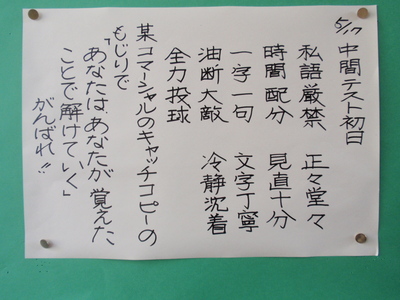 5/17 中間テスト初日
私語厳禁 正々堂々
時間配分 見直十分
一字一句 文字丁寧
油断大敵 冷静沈着
全力投球
某コマーシャルのキャッチコピーの
もじりで
「あなたは、あなたが覚えた
ことで解けていく」
がんばれ!!